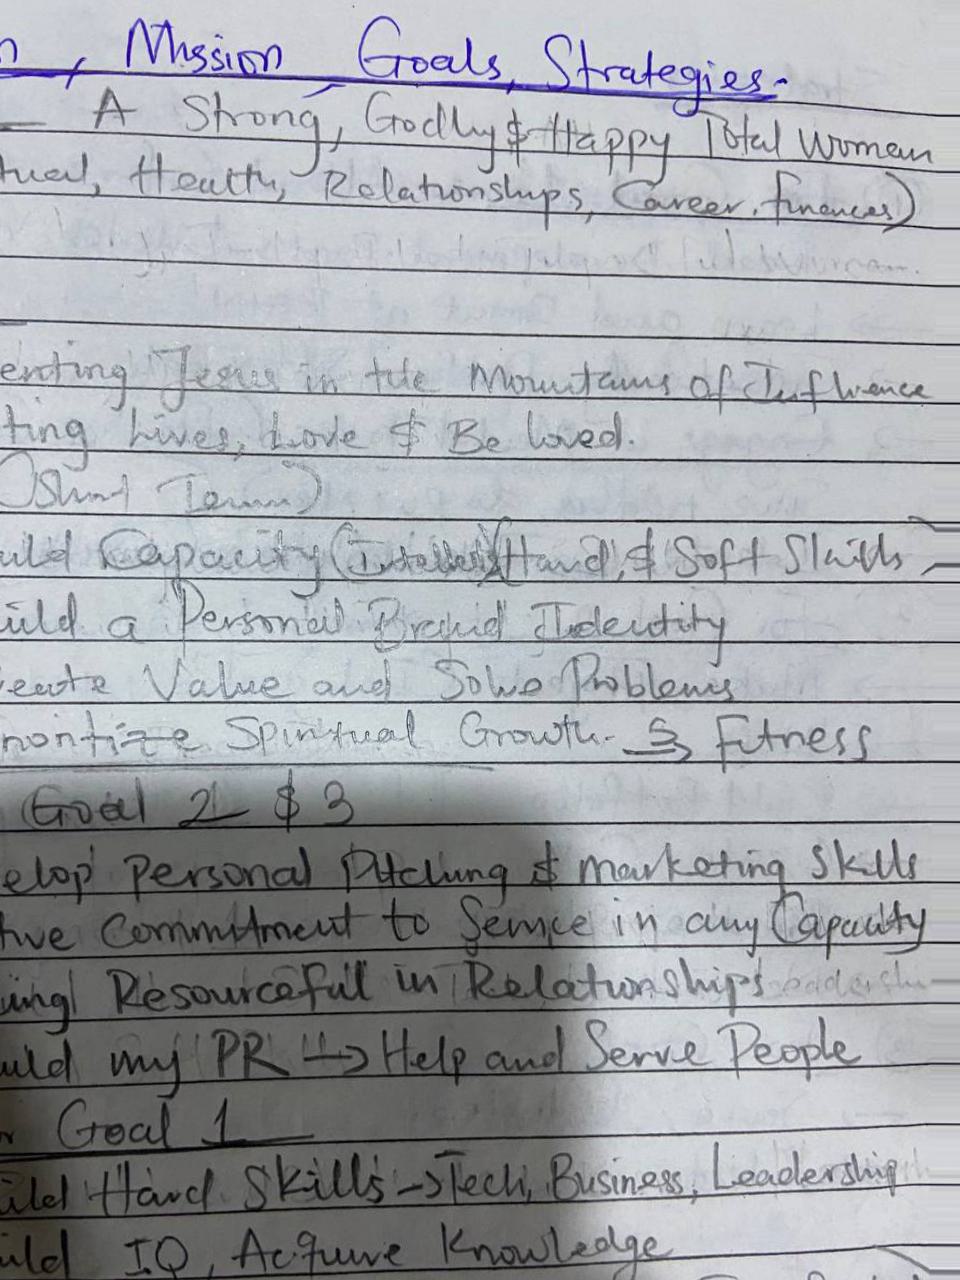 n, Mission Goals, Strategies:-
A Strong, Godly & Happy Total Woman
tual, Health, Relationships, Career, finances)
enting Jesus in the Mountains of Influence
ting Lives, Love & Be loved.
(Short Term)
uild Capacity (Hard, & Soft Skills
uild a Personal Brand Identity
reate Value and Solve Problems
rioritize Spiritual Growth & Fitness
Goal 2 & 3
elop Personal Pitching & Marketing Skills
Commitment to Service in any Capacity
ing Resourceful in Relationships Leadership
uild my PR → Help and Serve People
r Goal 1
uild Hard Skills → Tech, Business, Leadership
uild IQ, Acquire Knowledge